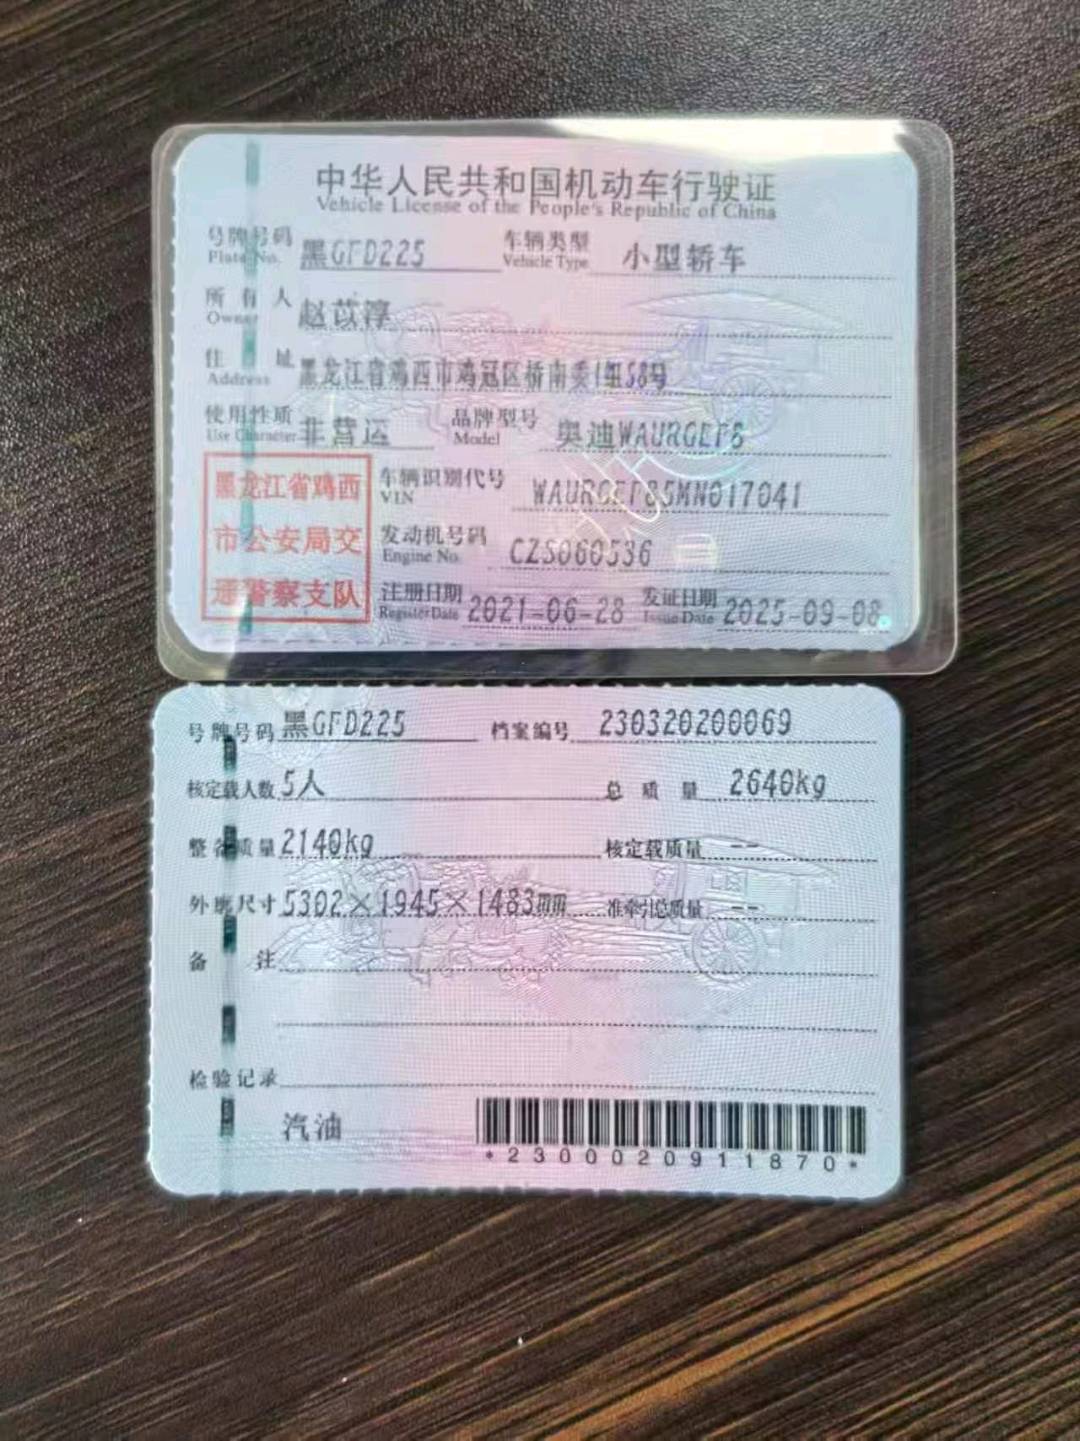 中华人民共和国机动车行驶证
Vehicle License of the People's Republic of China
号牌号码 黑GFD225 车辆类型 小型轿车
Plate No. Vehicle Type
所有人 赵苡淳
Owner
住址 黑龙江省鸡西市鸡冠区桥南委1组58号
Address
使用性质 非营运 品牌型号 奥迪WAURGEF8
Use Character Model
黑龙江省鸡西
市公安局交
通警察支队
车辆识别代号 WAURGEF85MN017041
VIN
发动机号码 CZS060536
Engine No.
注册日期 2021-06-28 发证日期 2025-09-08
Register Date Issue Date
号牌号码 黑GFD225 档案编号 230320200069
核定载人数 5人 总质量 2640kg
整备质量 2140kg 核定载质量 --
外廓尺寸 5302×1945×1483mm 准牵引总质量 --
备注
检验记录
汽油
*2300020911870*